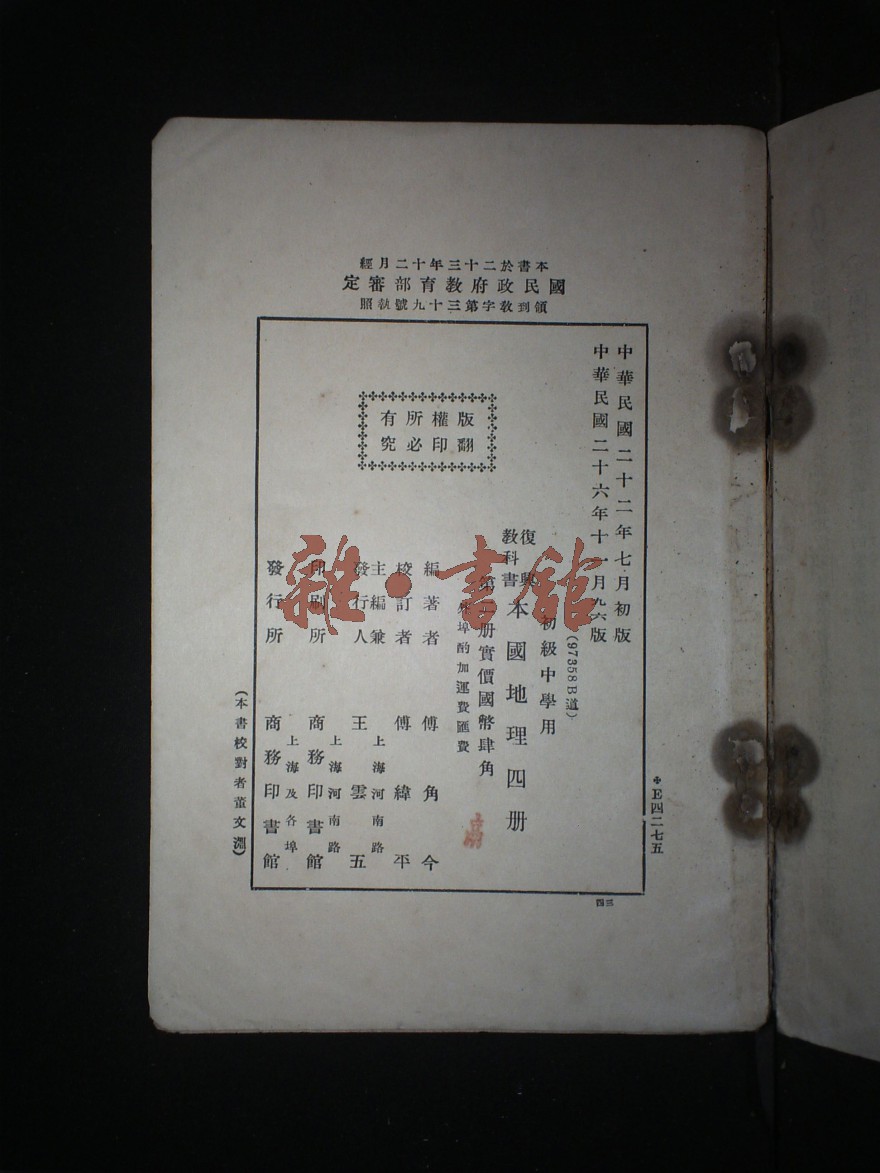 本書於二十三年十二月經
國民政府教育部審定
領到教字第三十九號執照
中華民國二十二年七月初版
中華民國二十六年十一月九六版
(97358B道)
初級中學用
復興
教科書
本國地理四册
册實價國幣肆角
外埠酌加運費匯費
版權所有
翻印必究
編著者 傅角今
校訂者 傅緯平
上海河南路
主編兼
發行人 王雲五
上海河南路
印刷所 商務印書館
上海及各埠
發行所 商務印書館
(本書校對者董文淵)
E四二七五
三四
雜·書館